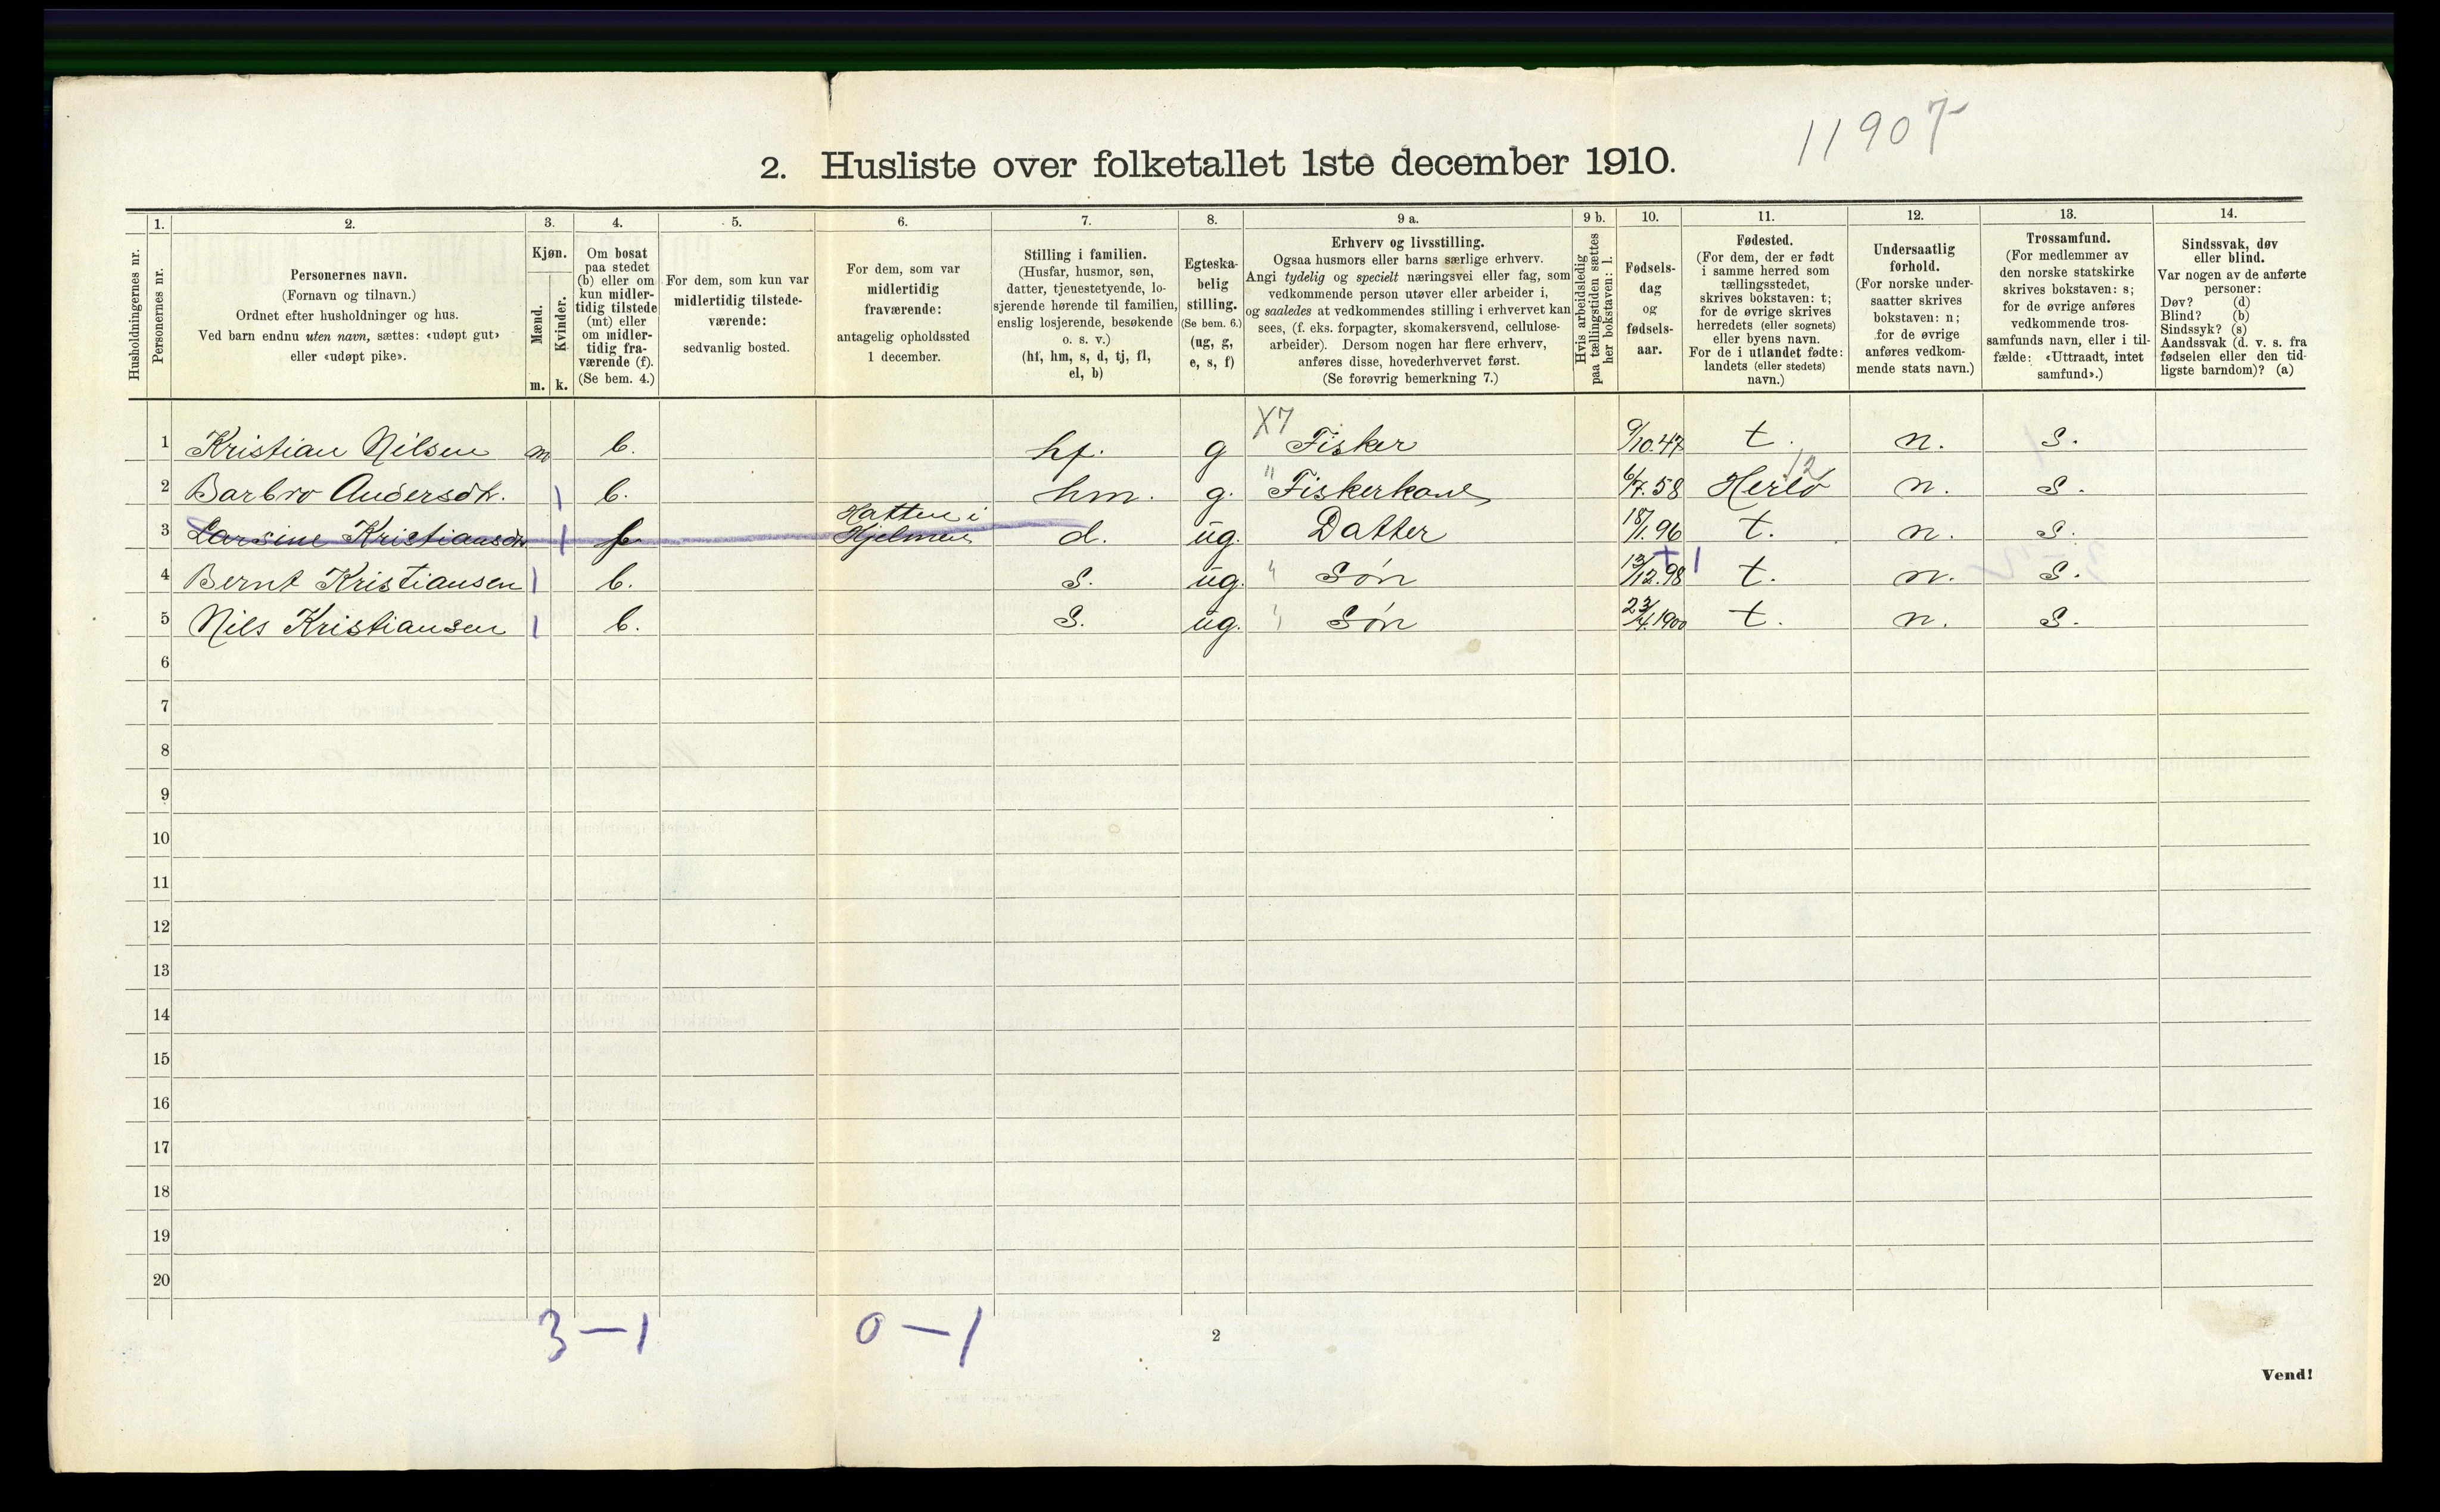 11907
2. Husliste over folketallet 1ste december 1910.
Husholdningernes nr.
1.
Personernes nr.
2.
Personernes navn.
(Fornavn og tilnavn.)
Ordnet efter husholdninger og hus.
Ved barn endnu uten navn, sættes: «udøpt gut»
eller «udøpt pike».
3.
Kjøn.
Mænd.
Kvinder.
m. k.
4.
Om bosat
paa stedet
(b) eller om
kun midler-
tidig tilstede
(mt) eller
om midler-
tidig fra-
værende (f).
(Se bem. 4.)
5.
For dem, som kun var
midlertidig tilstede-
værende:
sedvanlig bosted.
6.
For dem, som var
midlertidig
fraværende:
antagelig opholdssted
1 december.
7.
Stilling i familien.
(Husfar, husmor, søn,
datter, tjenestetyende, lo-
sjerende hørende til familien,
enslig losjerende, besøkende
o. s. v.)
(hf, hm, s, d, tj, fl,
el, b)
8.
Egteska-
belig
stilling.
(Se bem. 6.)
(ug, g,
e, s, f)
9 a.
Erhverv og livsstilling.
Ogsaa husmors eller barns særlige erhverv.
Angi tydelig og specielt næringsvei eller fag, som
vedkommende person utøver eller arbeider i,
og saaledes at vedkommendes stilling i erhvervet kan
sees, (f. eks. forpagter, skomakersvend, cellulose-
arbeider). Dersom nogen har flere erhverv,
anføres disse, hovederhvervet først.
(Se forøvrig bemerkning 7.)
9 b.
Hvis arbeidsledig
paa tællingstiden sættes
her bokstaven: l.
10.
Fødsels-
dag
og
fødsels-
aar.
11.
Fødested.
(For dem, der er født
i samme herred som
tællingsstedet,
skrives bokstaven: t;
for de øvrige skrives
herredets (eller sognets)
eller byens navn.
For de i utlandet fødte:
landets (eller stedets)
navn.)
12.
Undersaatlig
forhold.
(For norske under-
saatter skrives
bokstaven: n;
for de øvrige
anføres vedkom-
mende stats navn.)
13.
Trossamfund.
(For medlemmer av
den norske statskirke
skrives bokstaven: s;
for de øvrige anføres
vedkommende tros-
samfunds navn, eller i til-
fælde: «Uttraadt, intet
samfund».)
14.
Sindssvak, døv
eller blind.
Var nogen av de anførte
personer:
Døv? (d)
Blind? (b)
Sindssyk? (s)
Aandssvak (d. v. s. fra
fødselen eller den tid-
ligste barndom)? (a)
1 Kristian Nilsen m b. hf. g X7 Fisker 9/10.47 t. n. s.
2 Barbro Andersdtr. 1 b. hm. g. " Fiskerkone 6/7.58 Herlö 12 n. s.
3 Larsine Kristiansdtr 1 f Hatten i Hjelmen d. ug. Datter 18/1.96 t. n. s.
4 Bernt Kristiansen 1 b. s. ug. " Søn 13/12.98 + 1 t. n. s.
5 Nils Kristiansen 1 b. s. ug. " Søn 23/4.1900 t. n. s.
6
7
8
9
10
11
12
13
14
15
16
17
18
19
20
3-1 0-1
2
Vend!